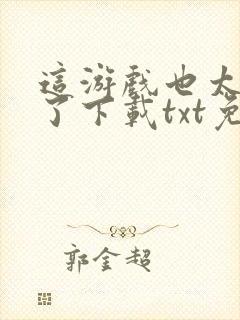 這游戲也太
了下載txt免
郭金超